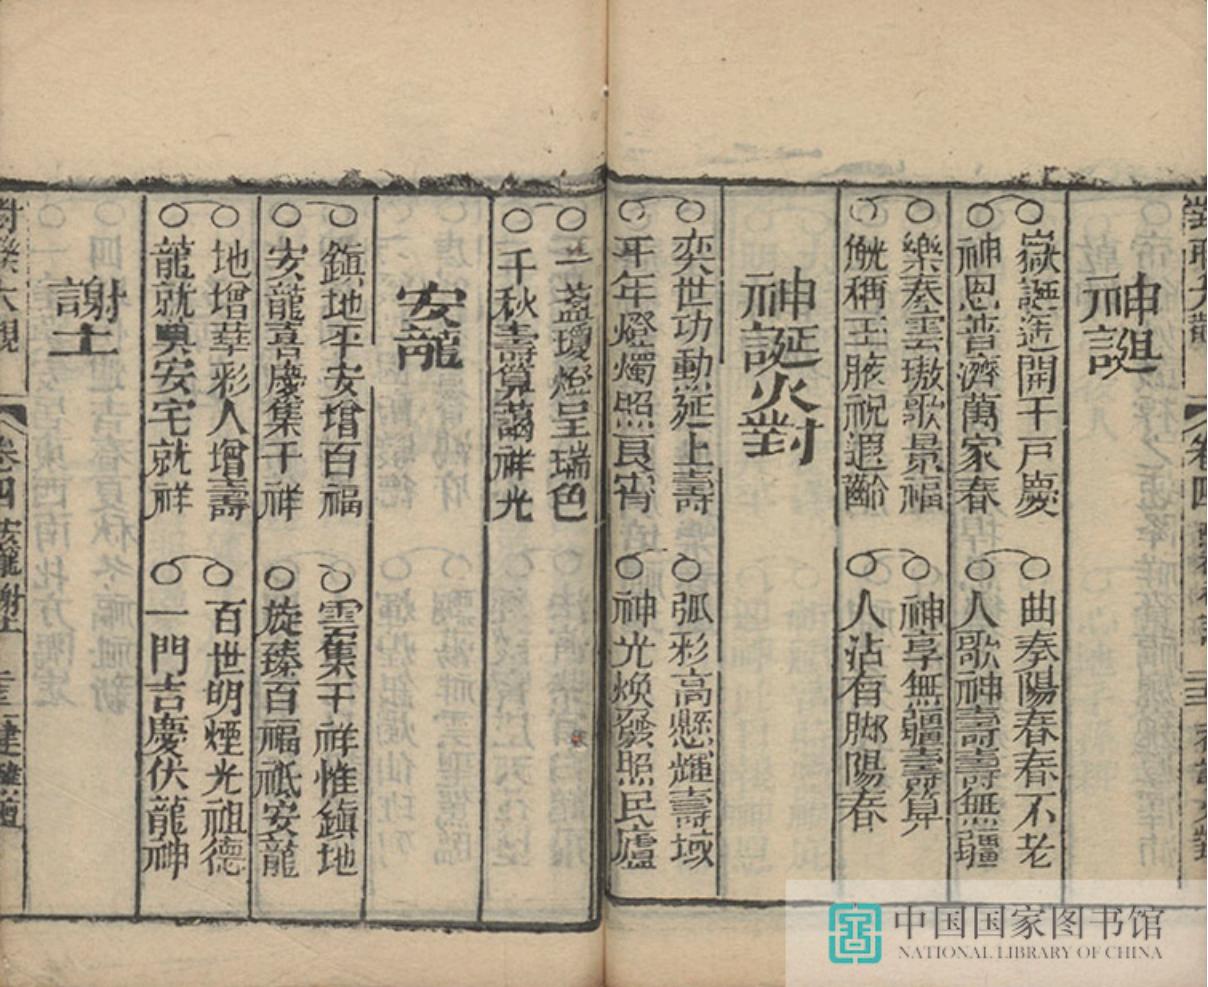 神誕
嶽誕筵開千戶慶
神恩普濟萬家春
曲奏陽春春不老
人歌神壽壽無疆
樂奏雲璈歌景福
觥稱玉液祝遐齡
神享無疆壽算
人沾有脚陽春
神誕火對
奕世功勳延上壽
千年燈燭照良宵
弧彩高懸輝壽域
神光煥發照民廬
三盞瓊燈呈瑞色
千秋壽算藹祥光
安龍
鎮地平安增百福
安龍喜慶集千祥
雲集千祥惟鎮地
旋臻百福祗安龍
地增華彩人增壽
龍就奧安宅就祥
百世明煙光祖德
一門吉慶伏龍神
謝土
卷四 安龍謝土
中国国家图书馆
NATIONAL LIBRARY OF CHINA